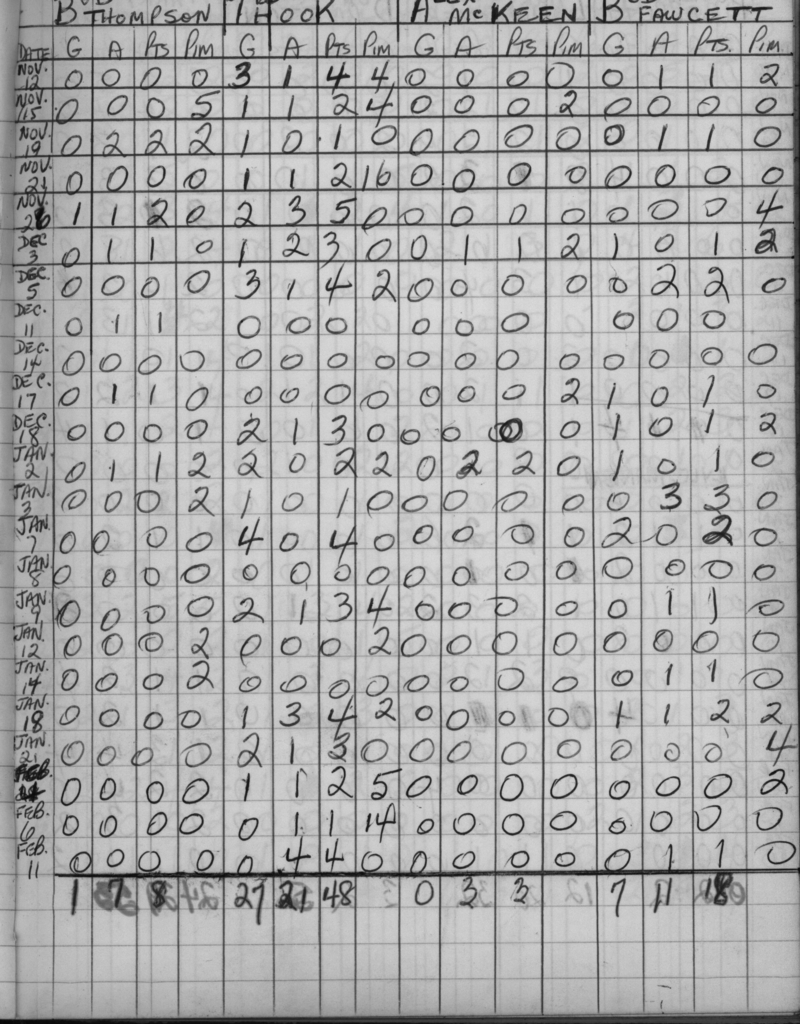 B THOMPSON T HOOK A McKEEN B FAWCETT
DATE G A PTS PIM G A PTS PIM G A PTS PIM G A PTS. PIM.
NOV. 12 0 0 0 0 3 1 4 4 0 0 0 0 0 1 1 2
NOV. 15 0 0 0 5 1 1 2 4 0 0 0 2 0 0 0 0
NOV 19 0 2 2 2 1 0 1 0 0 0 0 0 0 1 1 0
NOV. 21 0 0 0 0 1 1 2 16 0 0 0 0 0 0 0 0
NOV. 26 1 1 2 0 2 3 5 0 0 0 0 0 0 0 0 4
DEC 3 0 1 1 0 1 2 3 0 0 1 1 2 1 0 1 2
DEC. 5 0 0 0 0 3 1 4 2 0 0 0 0 0 2 2 0
DEC. 11 0 1 1 0 0 0 0 0 0 0 0 0
DEC. 14 0 0 0 0 0 0 0 0 0 0 0 0 0 0 0 0
DEC. 17 0 1 1 0 0 0 0 0 0 0 0 2 1 0 1 0
DEC. 18 0 0 0 0 2 1 3 0 0 0 0 0 1 0 1 2
JAN. 2 0 1 1 2 2 0 2 2 0 2 2 0 1 0 1 0
JAN. 3 0 0 0 2 1 0 1 0 0 0 0 0 0 3 3 0
JAN. 7 0 0 0 0 4 0 4 0 0 0 0 0 2 0 2 0
JAN. 8 0 0 0 0 0 0 0 0 0 0 0 0 0 0 0 0
JAN. 9 0 0 0 0 2 1 3 4 0 0 0 0 0 1 1 0
JAN. 12 0 0 0 2 0 0 0 2 0 0 0 0 0 0 0 0
JAN. 14 0 0 0 2 0 0 0 0 0 0 0 0 0 1 1 0
JAN. 18 0 0 0 0 1 3 4 2 0 0 0 0 1 1 2 2
JAN. 21 0 0 0 0 2 1 3 0 0 0 0 0 0 0 0 4
FEB. 0 0 0 0 1 1 2 5 0 0 0 0 0 0 0 2
FEB. 6 0 0 0 0 0 1 1 14 0 0 0 0 0 0 0 0
FEB. 11 0 0 0 0 0 4 4 0 0 0 0 0 0 1 1 0
1 7 8 27 21 48 0 3 3 7 11 18